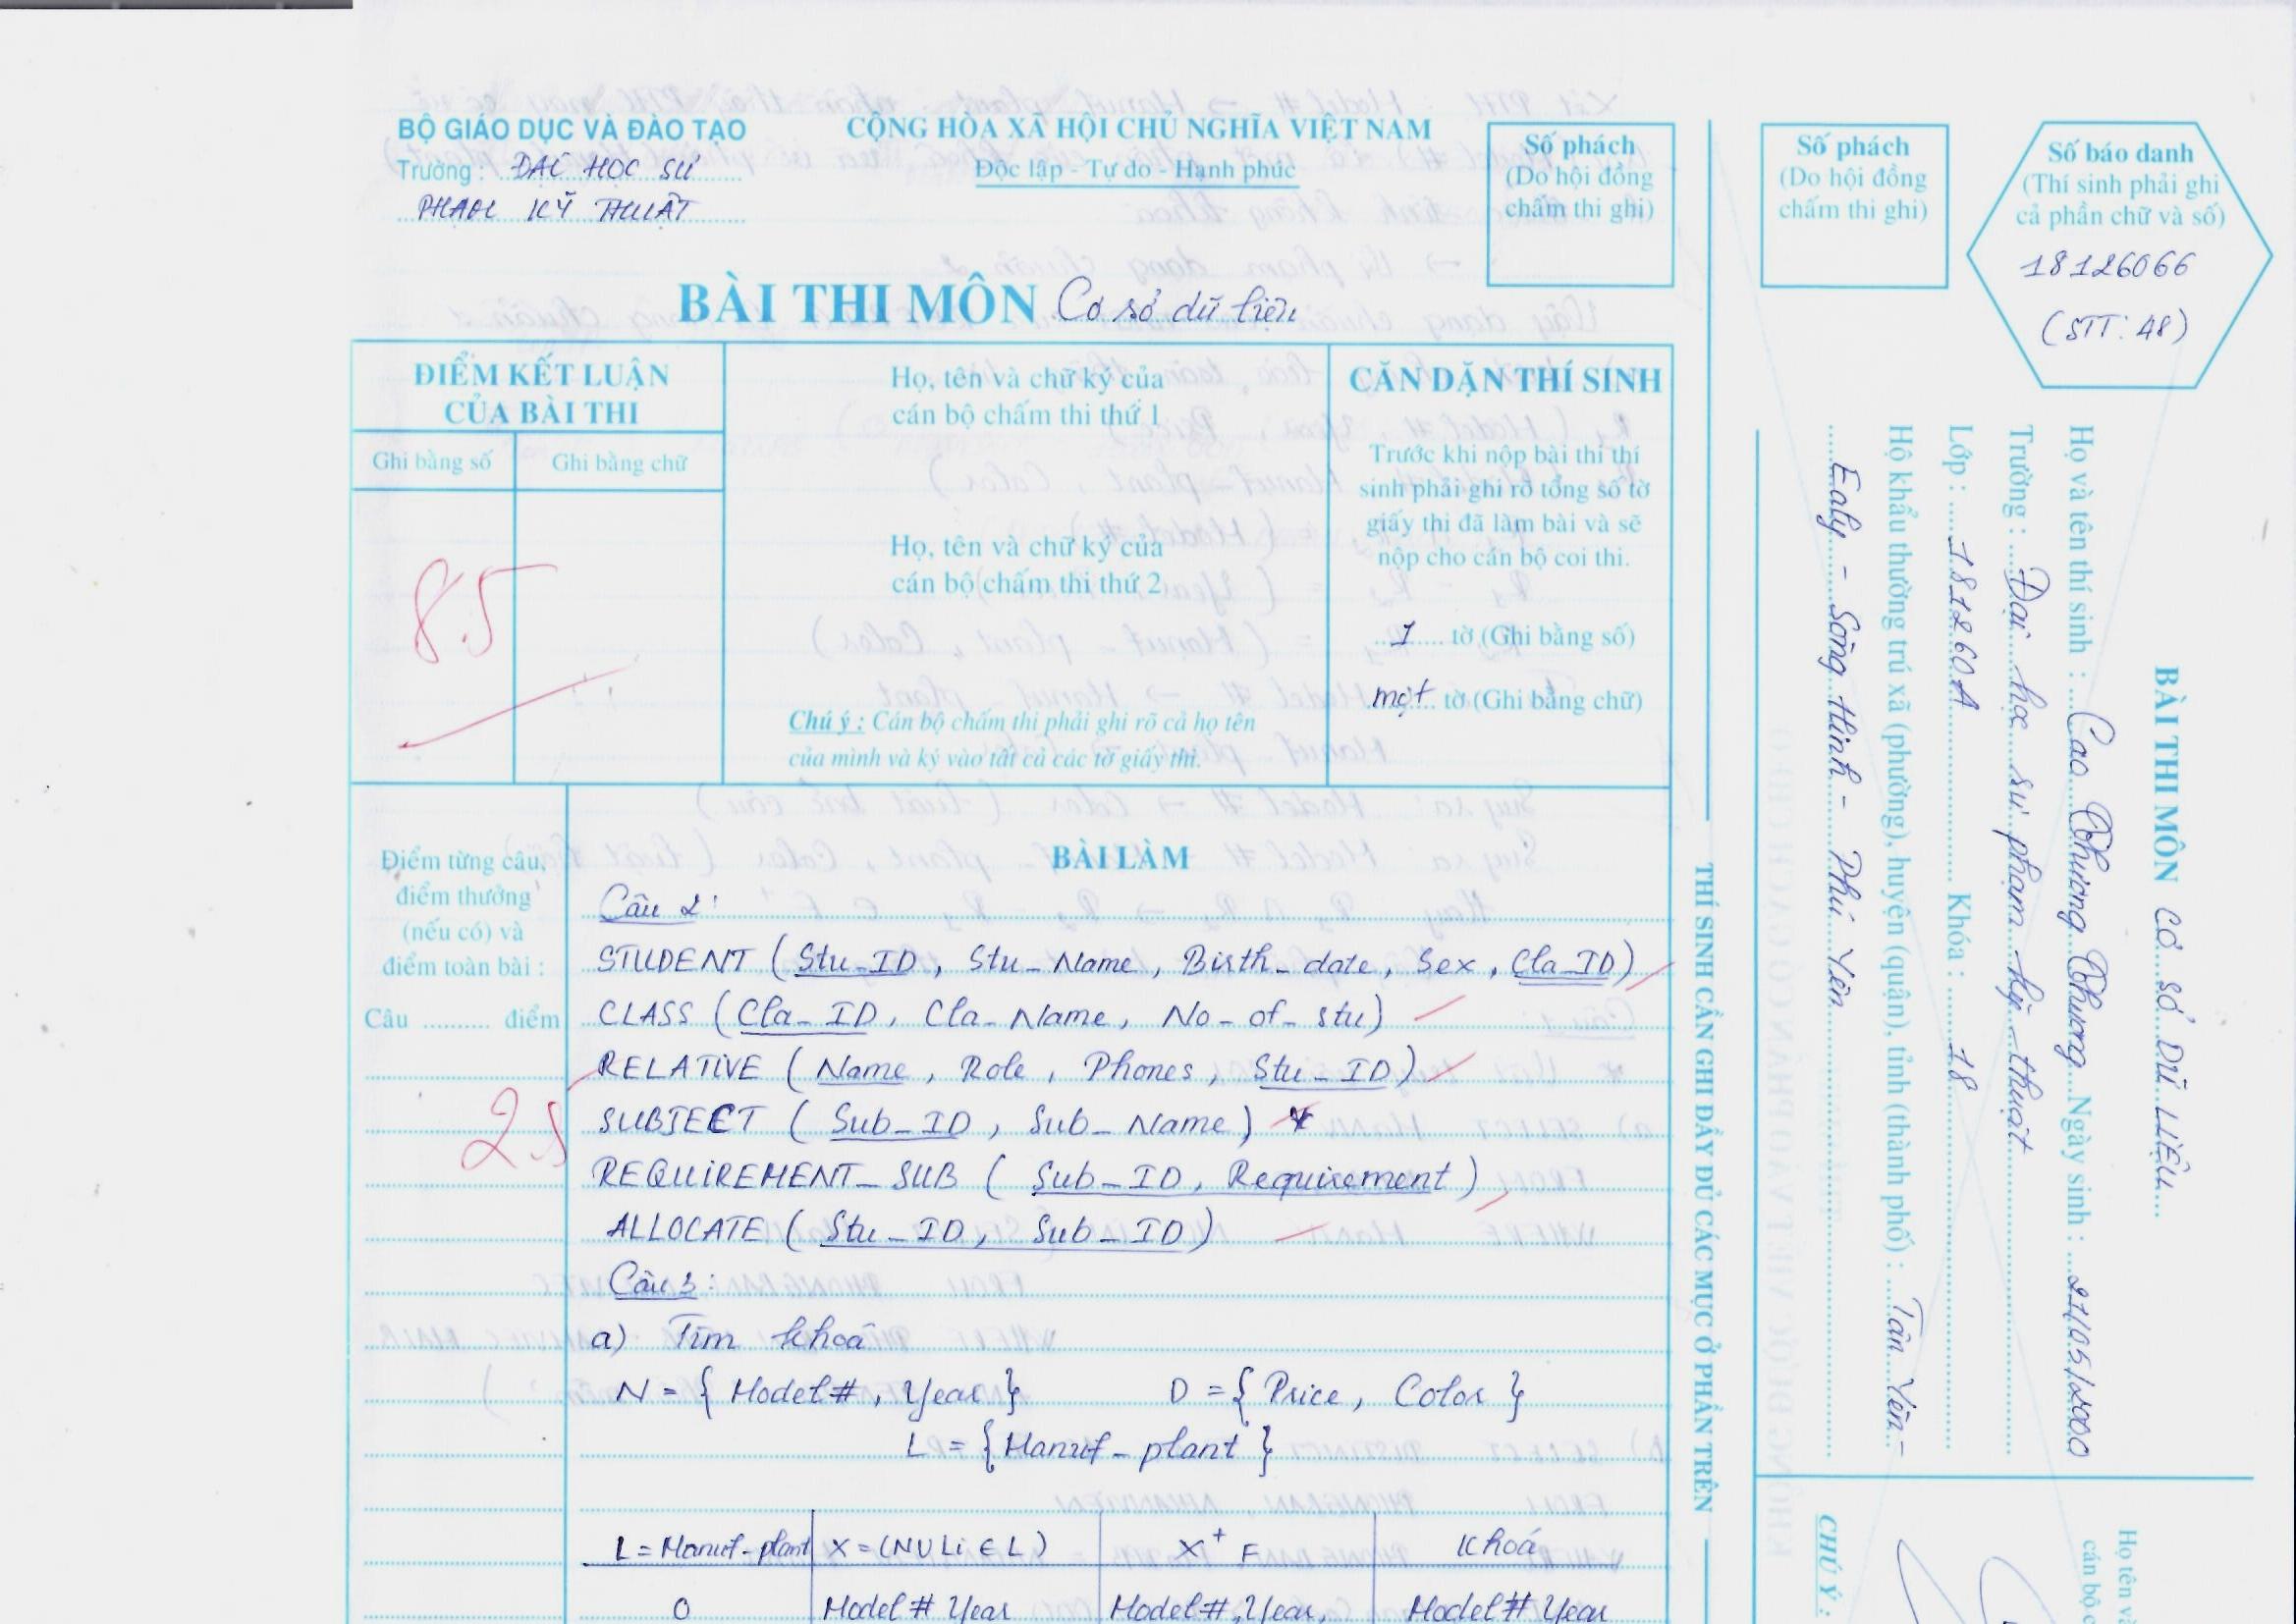 BỘ GIÁO DỤC VÀ ĐÀO TẠO
Trường : ĐẠI HỌC SƯ
PHẠM KỸ THUẬT
CỘNG HÒA XÃ HỘI CHỦ NGHĨA VIỆT NAM
Độc lập - Tự do - Hạnh phúc
Số phách
(Do hội đồng
chấm thi ghi)
BÀI THI MÔN Cơ sở dữ liệu
ĐIỂM KẾT LUẬN
CỦA BÀI THI
Ghi bằng số
Ghi bằng chữ
8.5
Họ, tên và chữ ký của
cán bộ chấm thi thứ 1
Họ, tên và chữ ký của
cán bộ chấm thi thứ 2
Chú ý : Cán bộ chấm thi phải ghi rõ cả họ tên
của mình và ký vào tất cả các tờ giấy thi.
CĂN DẶN THÍ SINH
Trước khi nộp bài thi thí
sinh phải ghi rõ tổng số tờ
giấy thi đã làm bài và sẽ
nộp cho cán bộ coi thi.
1 tờ (Ghi bằng số)
một tờ (Ghi bằng chữ)
Điểm từng câu,
điểm thưởng
(nếu có) và
điểm toàn bài :
Câu .......... điểm
2.5
BÀI LÀM
Câu 2:
STUDENT (Stu_ID, Stu_Name, Birth_date, Sex, Cla_ID)
CLASS (Cla_ID, Cla_Name, No_of_stu)
RELATIVE (Name, Role, Phones, Stu_ID)
SUBJECT (Sub_ID, Sub_Name)
REQUIREMENT_SUB (Sub_ID, Requirement)
ALLOCATE (Stu_ID, Sub_ID)
Câu 3:
a) Tìm khoá
N = { Model#, Year } D = { Price, Color }
L = { Manuf_plant }
L = Manuf_plant X = (N U Li ∈ L) X+ F Khoá
0 Model# Year Model#, Year, Model# Year
THÍ SINH CẦN GHI ĐẦY ĐỦ CÁC MỤC Ở PHẦN TRÊN
Số phách
(Do hội đồng
chấm thi ghi)
Số báo danh
(Thí sinh phải ghi
cả phần chữ và số)
18126066
(STT: 48)
BÀI THI MÔN CƠ SỞ DỮ LIỆU
Họ và tên thí sinh : Cao Thương Thương Ngày sinh : 21/05/2000
Trường : Đại học sư phạm kỹ thuật
Lớp : 181260A Khóa : 18
Hộ khẩu thường trú xã (phường), huyện (quận), tỉnh (thành phố) : Tân Yên -
Ealy - Sông Hinh - Phú Yên
Họ tên và
cán bộ c
CHÚ Ý :